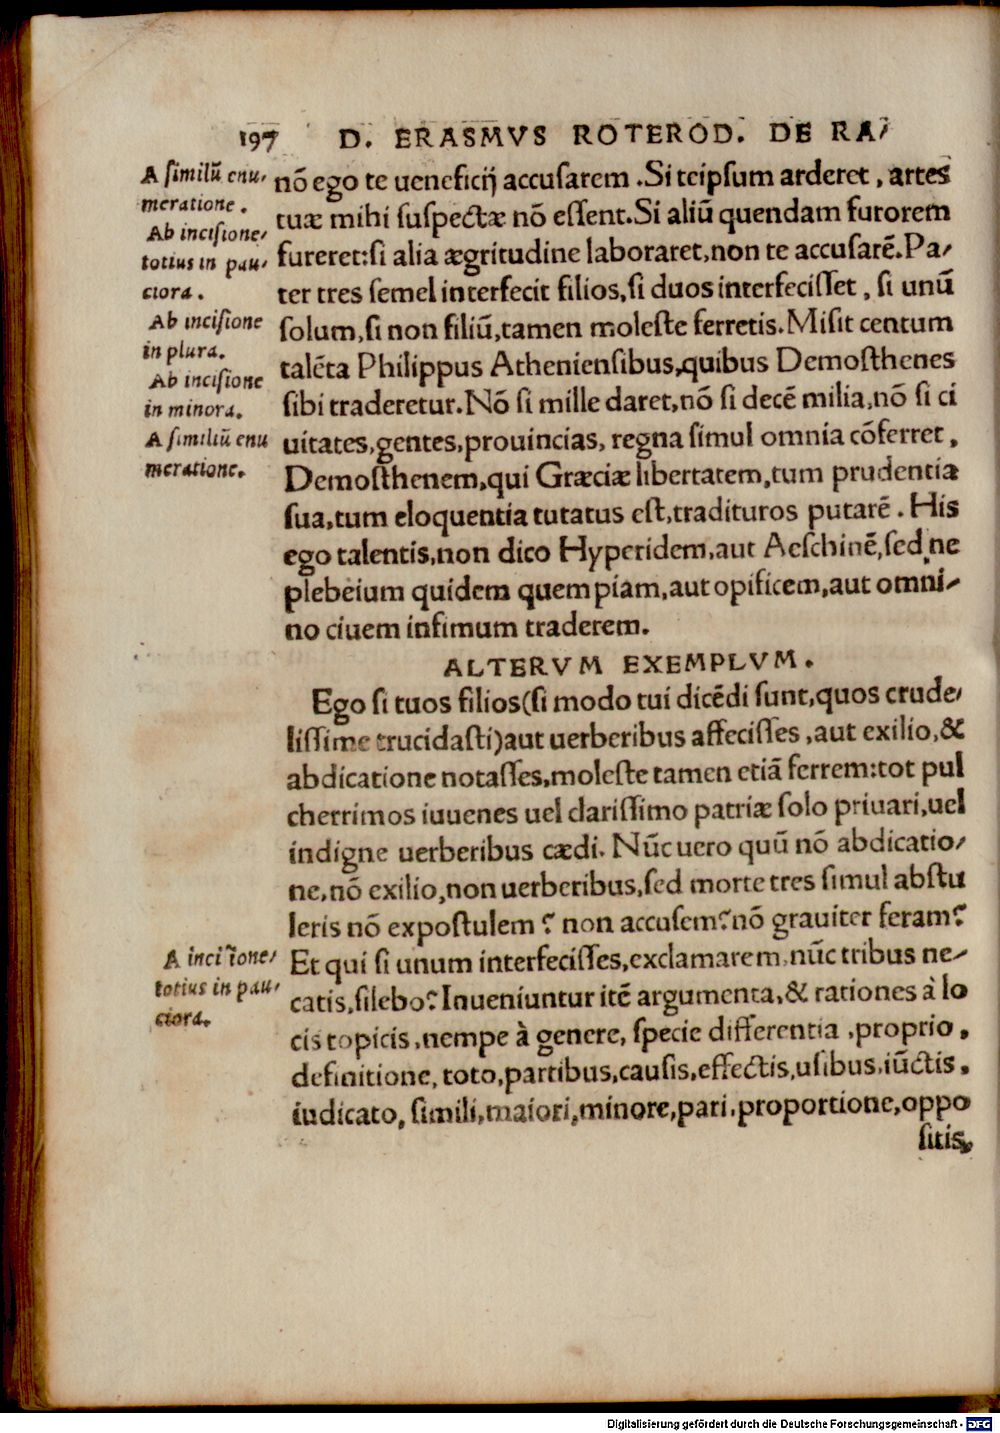 197 D. ERASMVS ROTEROD. DE RA/
A similiũ enu/
meratione.
Ab incisione/
totius in pau/
ciora.
Ab incisione
in plura.
Ab incisione
in minora.
A similiũ enu
meratione.
nõ ego te ueneficij accusarem. Si teipsum arderet, artes
tuæ mihi suspectæ nõ essent. Si aliũ quendam furorem
fureret: si alia ægritudine laboraret, non te accusarẽ. Pa/
ter tres semel interfecit filios, si duos interfecisset, si unũ
solum, si non filiũ, tamen moleste ferretis. Misit centum
talẽta Philippus Atheniensibus, quibus Demosthenes
sibi traderetur. Nõ si mille daret, nõ si decẽ milia, nõ si ci
uitates, gentes, prouincias, regna simul omnia cõferret,
Demosthenem, qui Græciæ libertatem, tum prudentia
sua, tum eloquentia tutatus est, tradituros putarẽ. His
ego talentis, non dico Hyperidem, aut Aeschinẽ, sed ne
plebeium quidem quempiam, aut opificem, aut omni/
no ciuem infimum traderem.
ALTERVM EXEMPLVM.
Ego si tuos filios (si modo tui dicẽdi sunt, quos crude/
lissime trucidasti) aut uerberibus affecisses, aut exilio, &
abdicatione notasses, moleste tamen etiã ferrem: tot pul
cherrimos iuuenes uel clarissimo patriæ solo priuari, uel
indigne uerberibus cædi. Nũc uero quũ nõ abdicatio/
ne, nõ exilio, non uerberibus, sed morte tres simul abstu
leris nõ expostulem? non accusem? nõ grauiter feram?
A inci ione/
totius in pau/
ciora.
Et qui si unum interfecisses, exclamarem, nũc tribus ne/
catis, silebo? Inueniuntur itẽ argumenta, & rationes à lo
cis topicis, nempe à genere, specie differentia, proprio,
definitione, toto, partibus, causis, effectis, usibus, iũctis,
iudicato, simili, maiori, minore, pari, proportione, oppo
sitis,
Digitalisierung gefördert durch die Deutsche Forschungsgemeinschaft - DFG